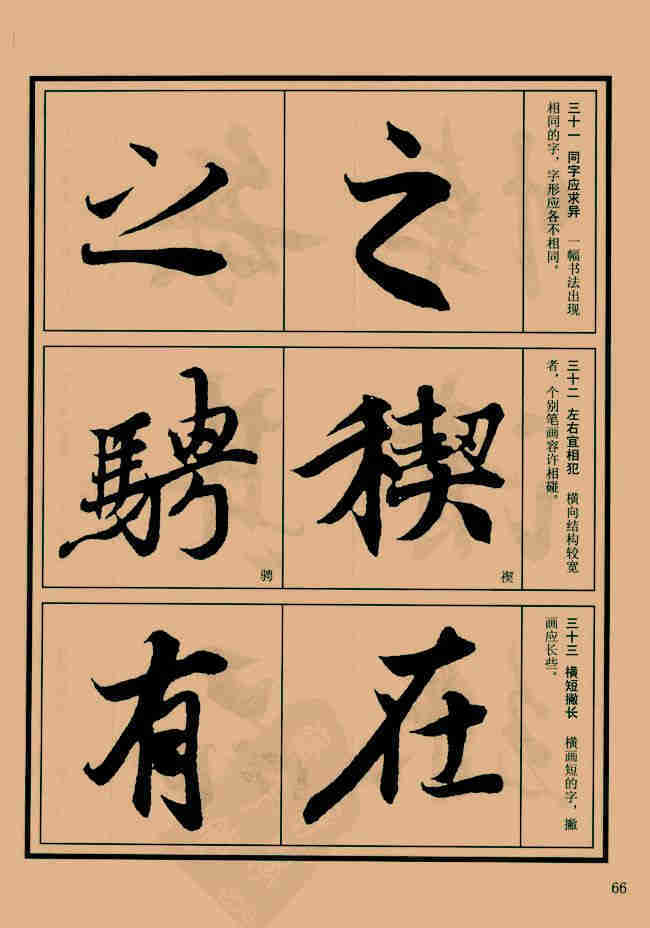 三十一 同字应求异 一幅书法出现
相同的字，字形应各不相同。
之
之
三十二 左右宜相犯 横向结构较宽
者，个别笔画容许相碰。
禊
楔
骋
三十三 横短撇长 横画短的字，撇
画应长些。
在
有
66